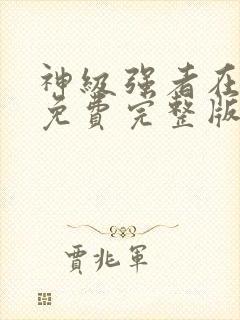 神级强者在
免费完整版
贾兆军